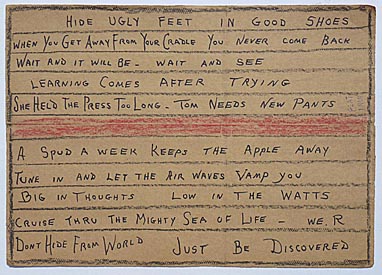 HIDE UGLY FEET IN GOOD SHOES
WHEN YOU GET AWAY FROM YOUR CRADLE YOU NEVER COME BACK
WAIT AND IT WILL BE - WAIT AND SEE
LEARNING COMES AFTER TRYING
SHE HELD THE PRESS TOO LONG - TOM NEEDS NEW PANTS
A SPUD A WEEK KEEPS THE APPLE AWAY
TUNE IN AND LET THE AIR WAVES VAMP YOU
BIG IN THOUGHTS LOW IN THE WATTS
CRUISE THRU THE MIGHTY SEA OF LIFE - WE, R
DONT HIDE FROM WORLD JUST BE DISCOVERED